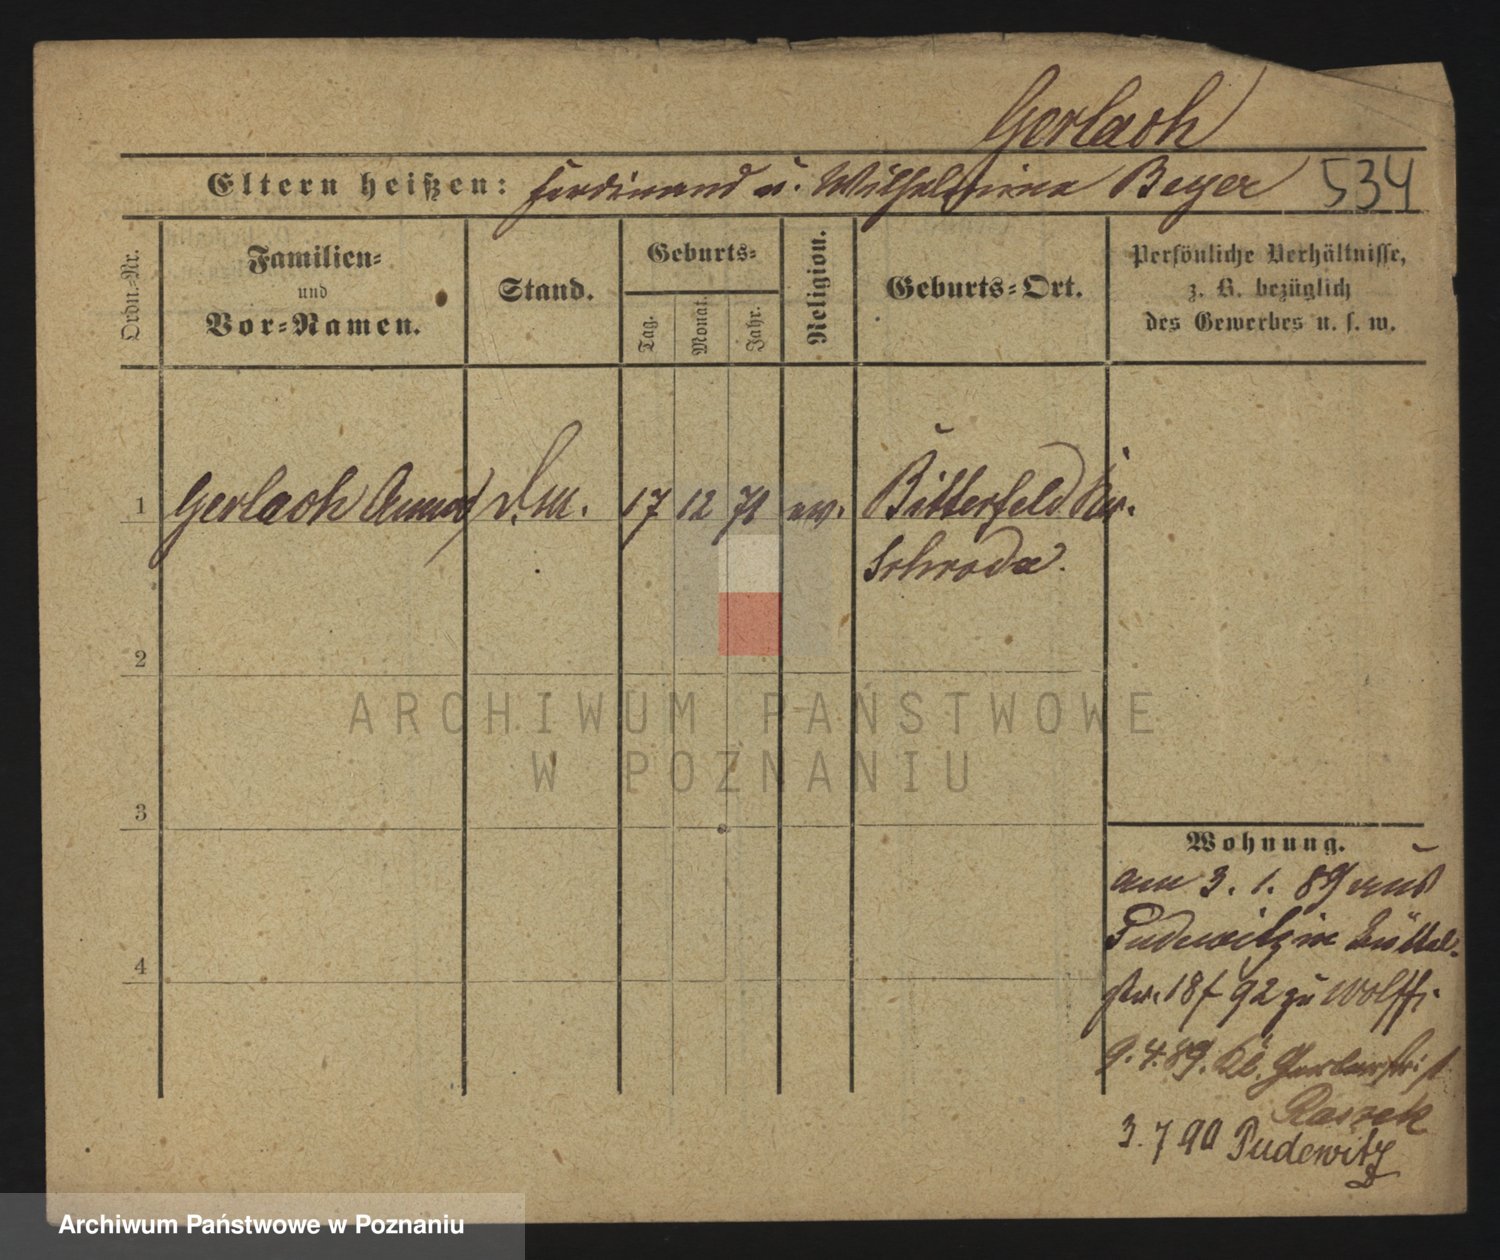 Gerlach
Eltern heißen: Ferdinand u. Wilhelmine Beyer 534
Ordn.-Nr.
Familien-
und
Vor-Namen.
Stand.
Geburts-
Tag.
Monat.
Jahr.
Religion.
Geburts-Ort.
Persönliche Verhältnisse,
z. B. bezüglich
des Gewerbes u. s. w.
1 Gerlach Anna 17 12 71 ev. Bitterfeld Kr.
Schroda.
2
3
4
Wohnung.
am 3. 1. 89 aus
Pudewitz in Büttel-
str. 18 f 92 zu Wolff
9. 4. 89. Kl. Gerberstr.
3. 7 90 Pudewitz
ARCHIWUM PAŃSTWOWE
W POZNANIU
Archiwum Państwowe w Poznaniu